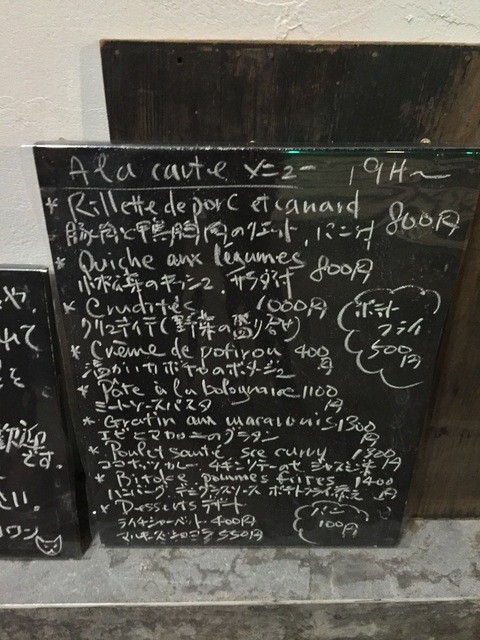 A la carte メニュー 19H〜
* Rillette de porc et canard
豚肉と鴨胸肉のリエット, パン付 800円
* Quiche aux légumes
小松菜のキッシュ. サラダ付 800円
* Crudités 1000円
クリュディテ(野菜の盛り合せ)
* Crème de potiron 400円
温かいカボチャのポタジュ
* Pâte à la bolognaise 1100円
ミートソースパスタ
* Gratin aux macaronis 1300円
エビとマカロニのグラタン
* Poulet sauté, sce curry 1300円
ココナッツカレー チキンソテー
* Bitoke pommes frites 1400円
ハンバーグ デミグラスソース ポテトフライ添え
* Desserts デザート
ライチシャーベット 400円
550円
ポテト
フライ
500
円
パン
100円
歓迎
です.